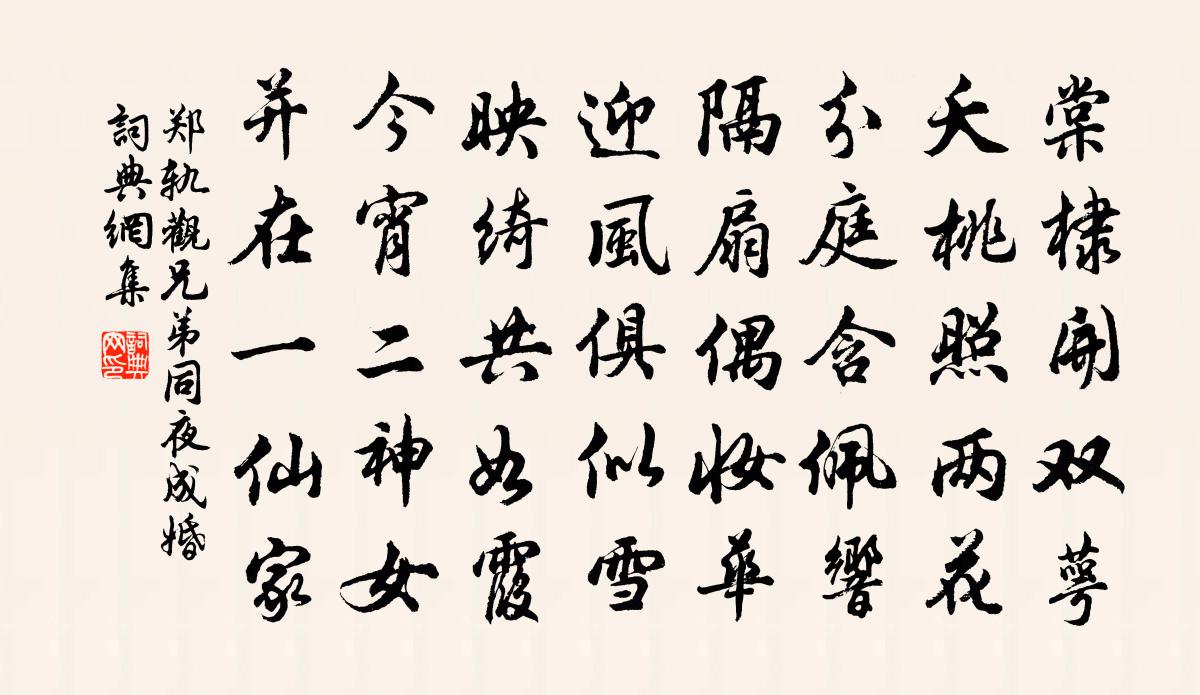 棠棣開双萼
夭桃照两花
分庭含佩響
隔扇偶妝華
迎風俱似雪
映綺共如霞
今宵二神女
并在一仙家
郑軌觀兄弟同夜成婚
詞典網集
詞典网印